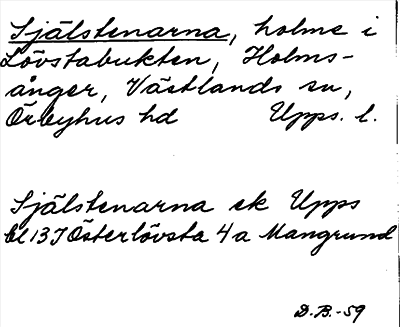 Själstenarna, holme i
Lövstabukten, Holms-
ånger, Västlands sn,
Örbyhus hd Upps. l.
Själstenarna ek Upps
bl 13 J Österlövsta 4 a Mangrund
D.B.-59